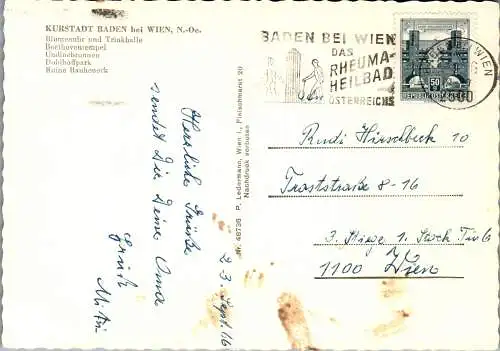 KURSTADT BADEN bei WIEN, N.-Oe.
Blumenuhr und Trinkhalle
Beethoventempel
Undinebrunnen
Doblhoffpark
Ruine Rauheneck
BADEN BEI WIEN
DAS
RHEUMA-
HEILBAD
ÖSTERREICHS
BEI WIEN
2500
50
REPUBLIK ÖSTERREICH
Nr. 48736 P. Ledermann, Wien I., Fleischmarkt 20
Nachdruck verboten
23. Sept. 76
Herzliche Grüße
sendet Dir Deine Oma
Gruß
Rudi Hirschbeck 10
Troststraße 8-16
3. Stiege 1. Stock Tür 6
1100 Wien